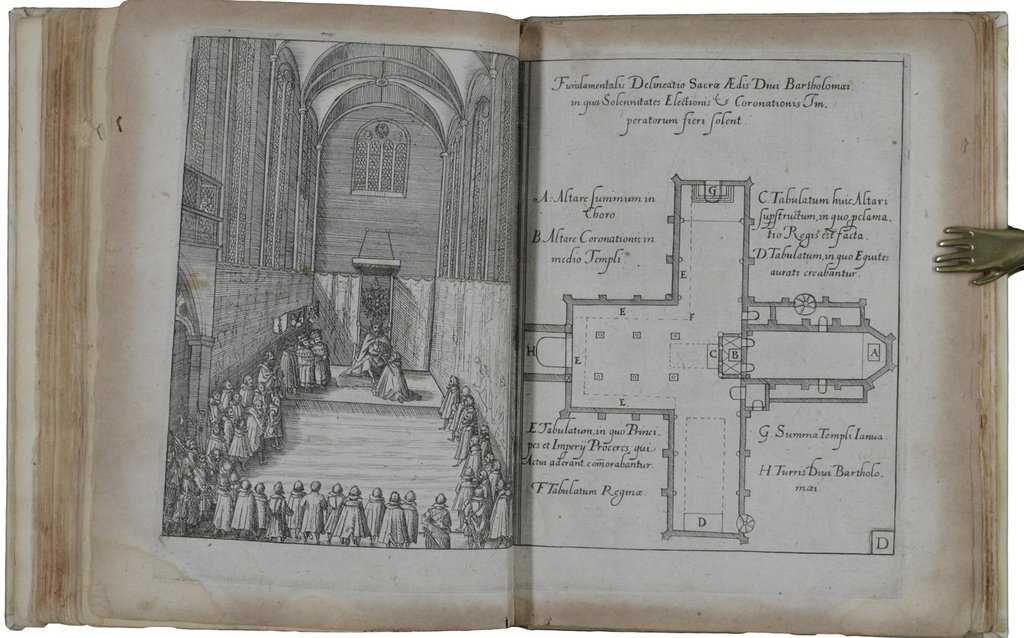 Fundamentalis Delineatio Sacræ Ædis Diui Bartholomæi
in qua Solennitates Electionis & Coronationis Im,
peratorum fieri solent
A. Altare summum in
Choro.
B. Altare Coronationis in
medio Templi
C. Tabulatum huic Altari
supstructum, in quo pclama,
tio Regis est facta.
D. Tabulatum, in quo Equites
aurati creabantur.
G
E
E
F
H
E
C
B
A
E
E Tabulatum, in quo Princi,
pes et Imperÿ Proceres, qui
Actui aderant, comorabantur.
F Tabulatum Reginæ.
G. Summa Templi Ianua.
H Turris Diui Bartholo,
mæi.
D
D